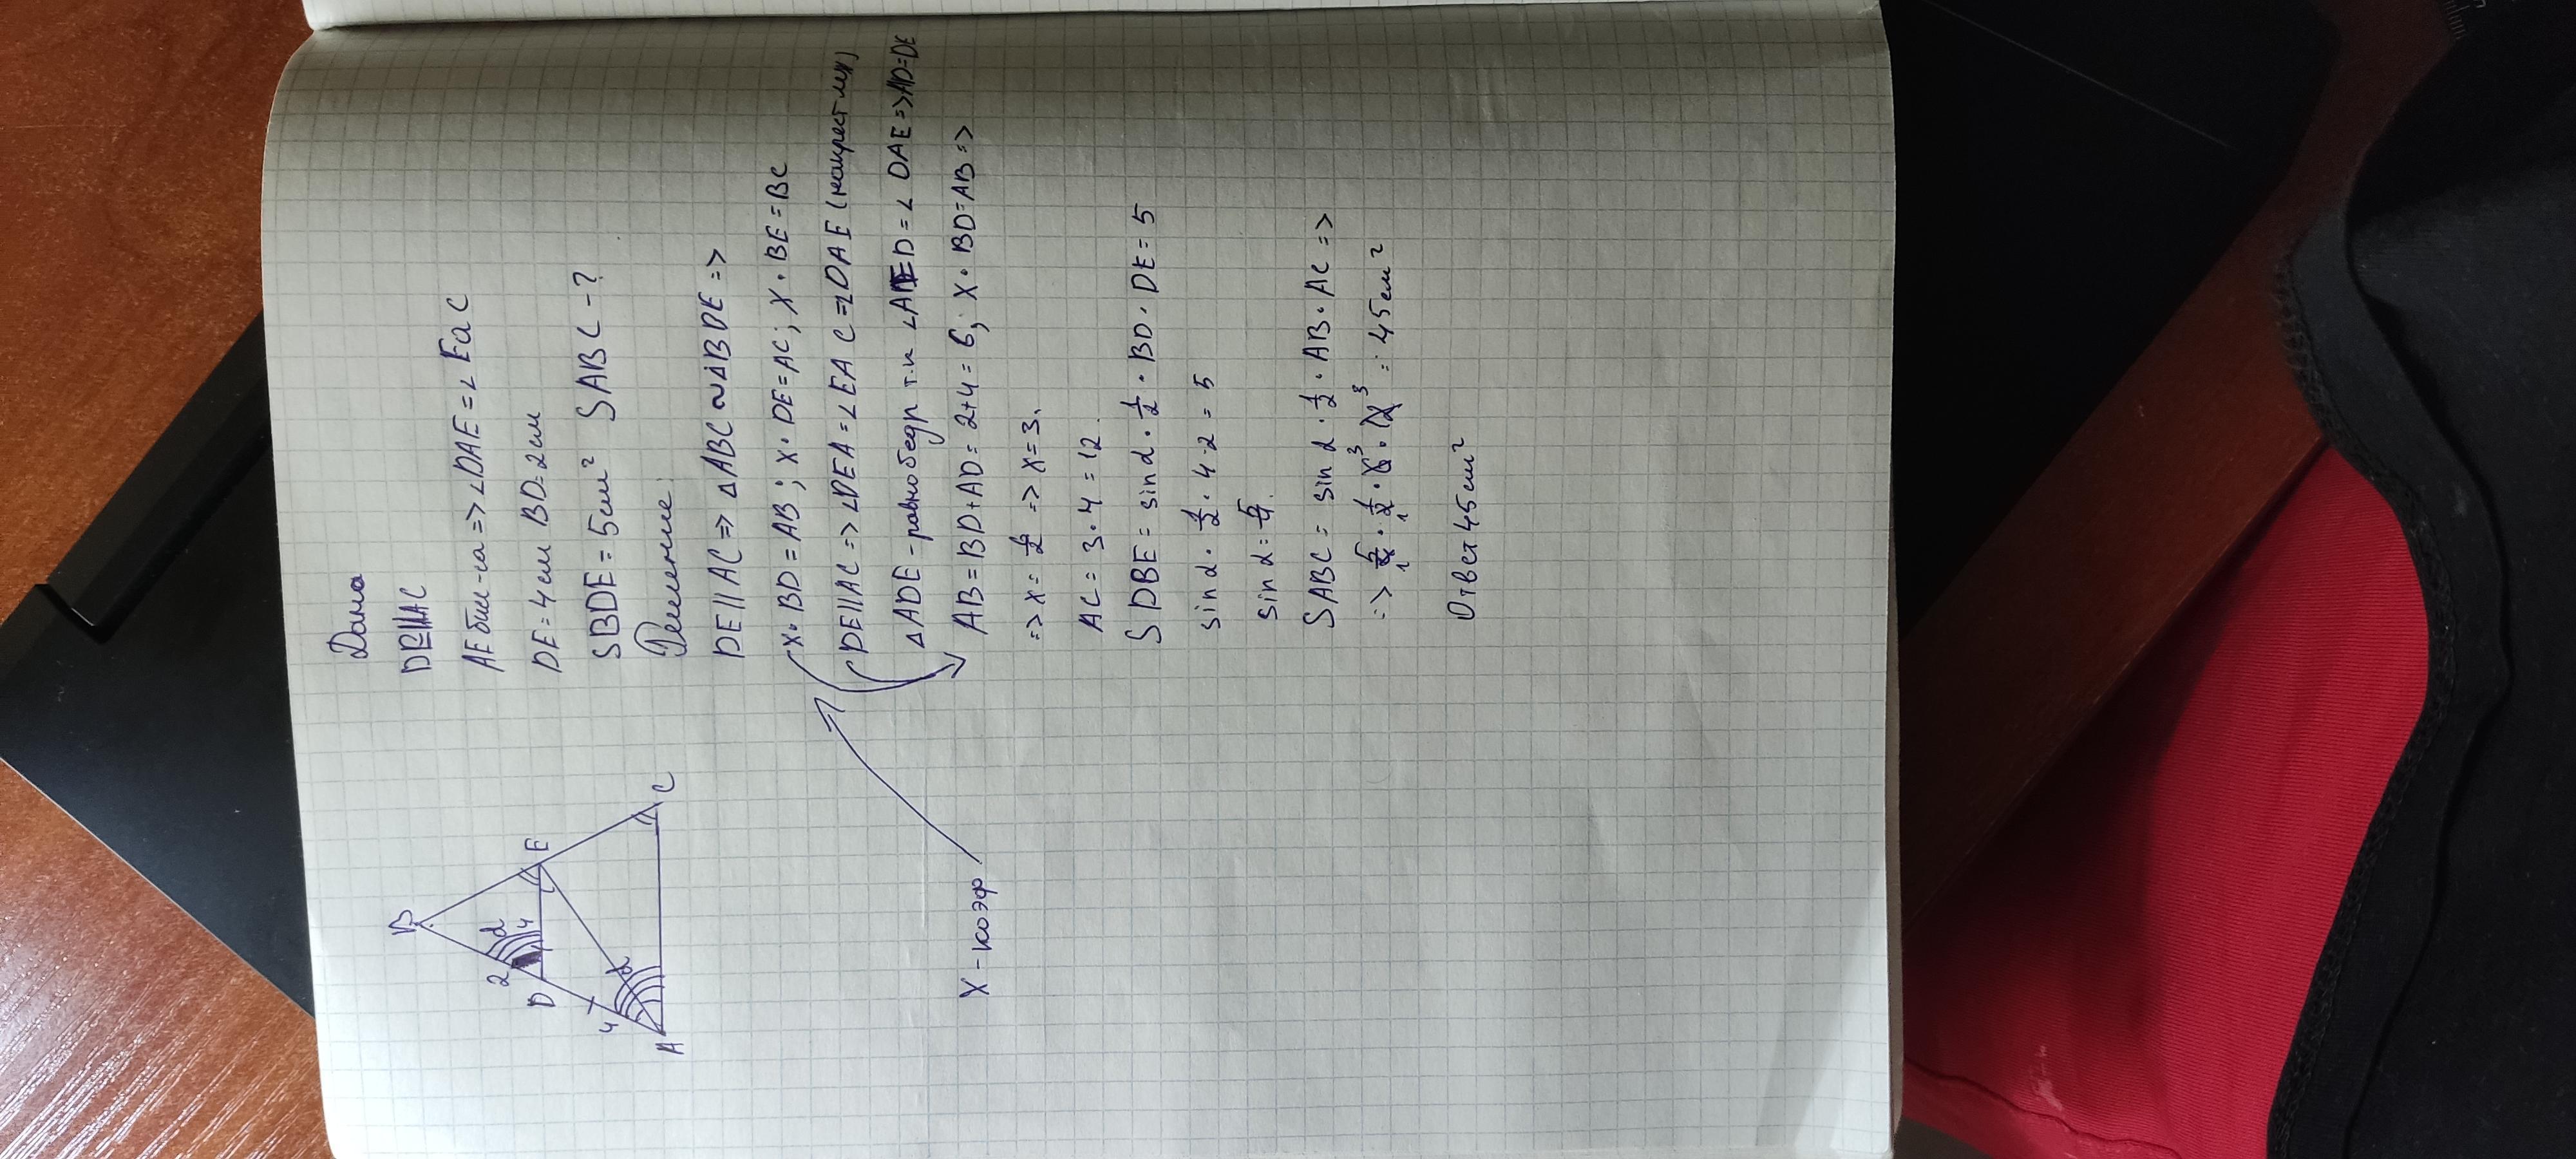 Дано
DE||AC
AE бис-са => ∠DAE = ∠EaC
DE = 4см BD = 2см
SBDE = 5см² SABC - ?
Решение:
DE || AC => △ABC ~ △BDE =>
x · BD = AB ; x · DE = AC ; x · BE = BC
DE||AC => ∠DEA = ∠EAC = ∠DAE (накрест леж)
△ADE - равнобедр т.к ∠AED = ∠DAE => AD = DE
AB = BD + AD = 2+4 = 6 ; x · BD = AB =>
=> x = 6/2 => x = 3.
AC = 3 · 4 = 12.
SDBE = sin α · 1/2 · BD · DE = 5
sin α · 1/2 · 4 · 2 = 5
sin α = 5/4.
SABC = sin α · 1/2 · AB · AC =>
=> 5/4 1 · 1/2 1 · 6 3 · 12 3 = 45см²
Ответ 45см²
B
2
α
D
4
E
4
α
A
C
x - коэф